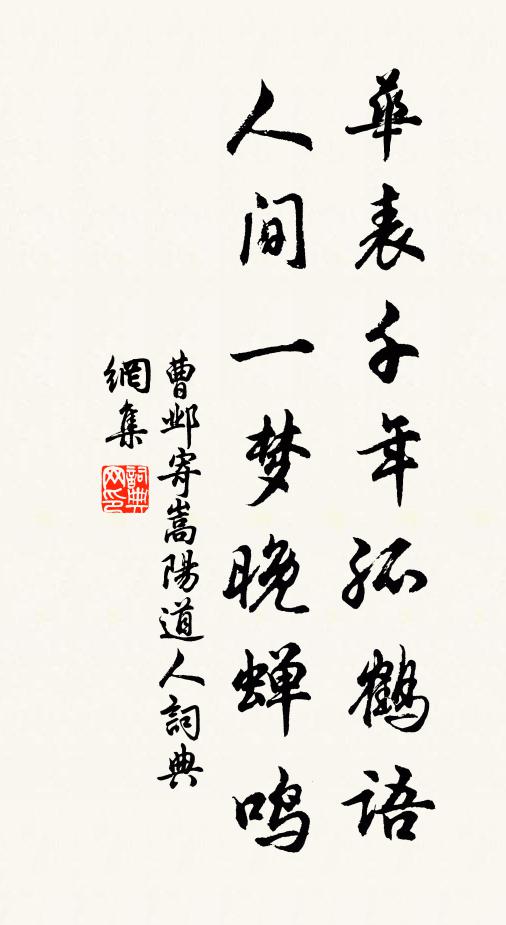 華表千年孤鶴語
人间一梦晚蝉鸣
曹邺寄嵩陽道人詞典
網集
詞典網印